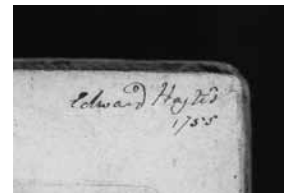 Edward Hasted
1755